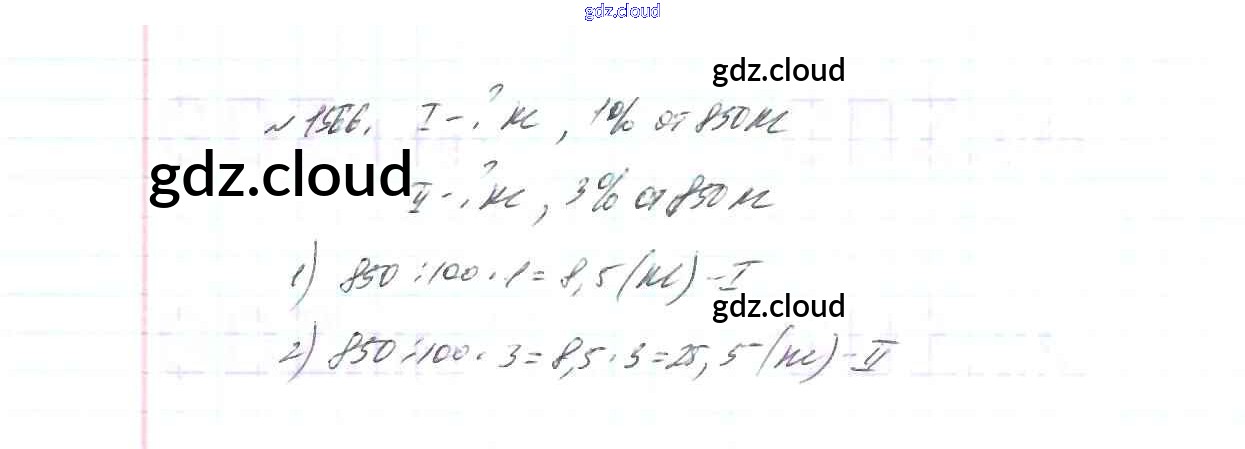 gdz.cloud
gdz.cloud
№ 1566. I - ? кг, 1% от 850 кг
gdz.cloud
II - ? кг, 3% от 850 кг
1) 850 : 100 · 1 = 8,5 (кг) - I
gdz.cloud
2) 850 : 100 · 3 = 8,5 · 3 = 25,5 (кг) - II